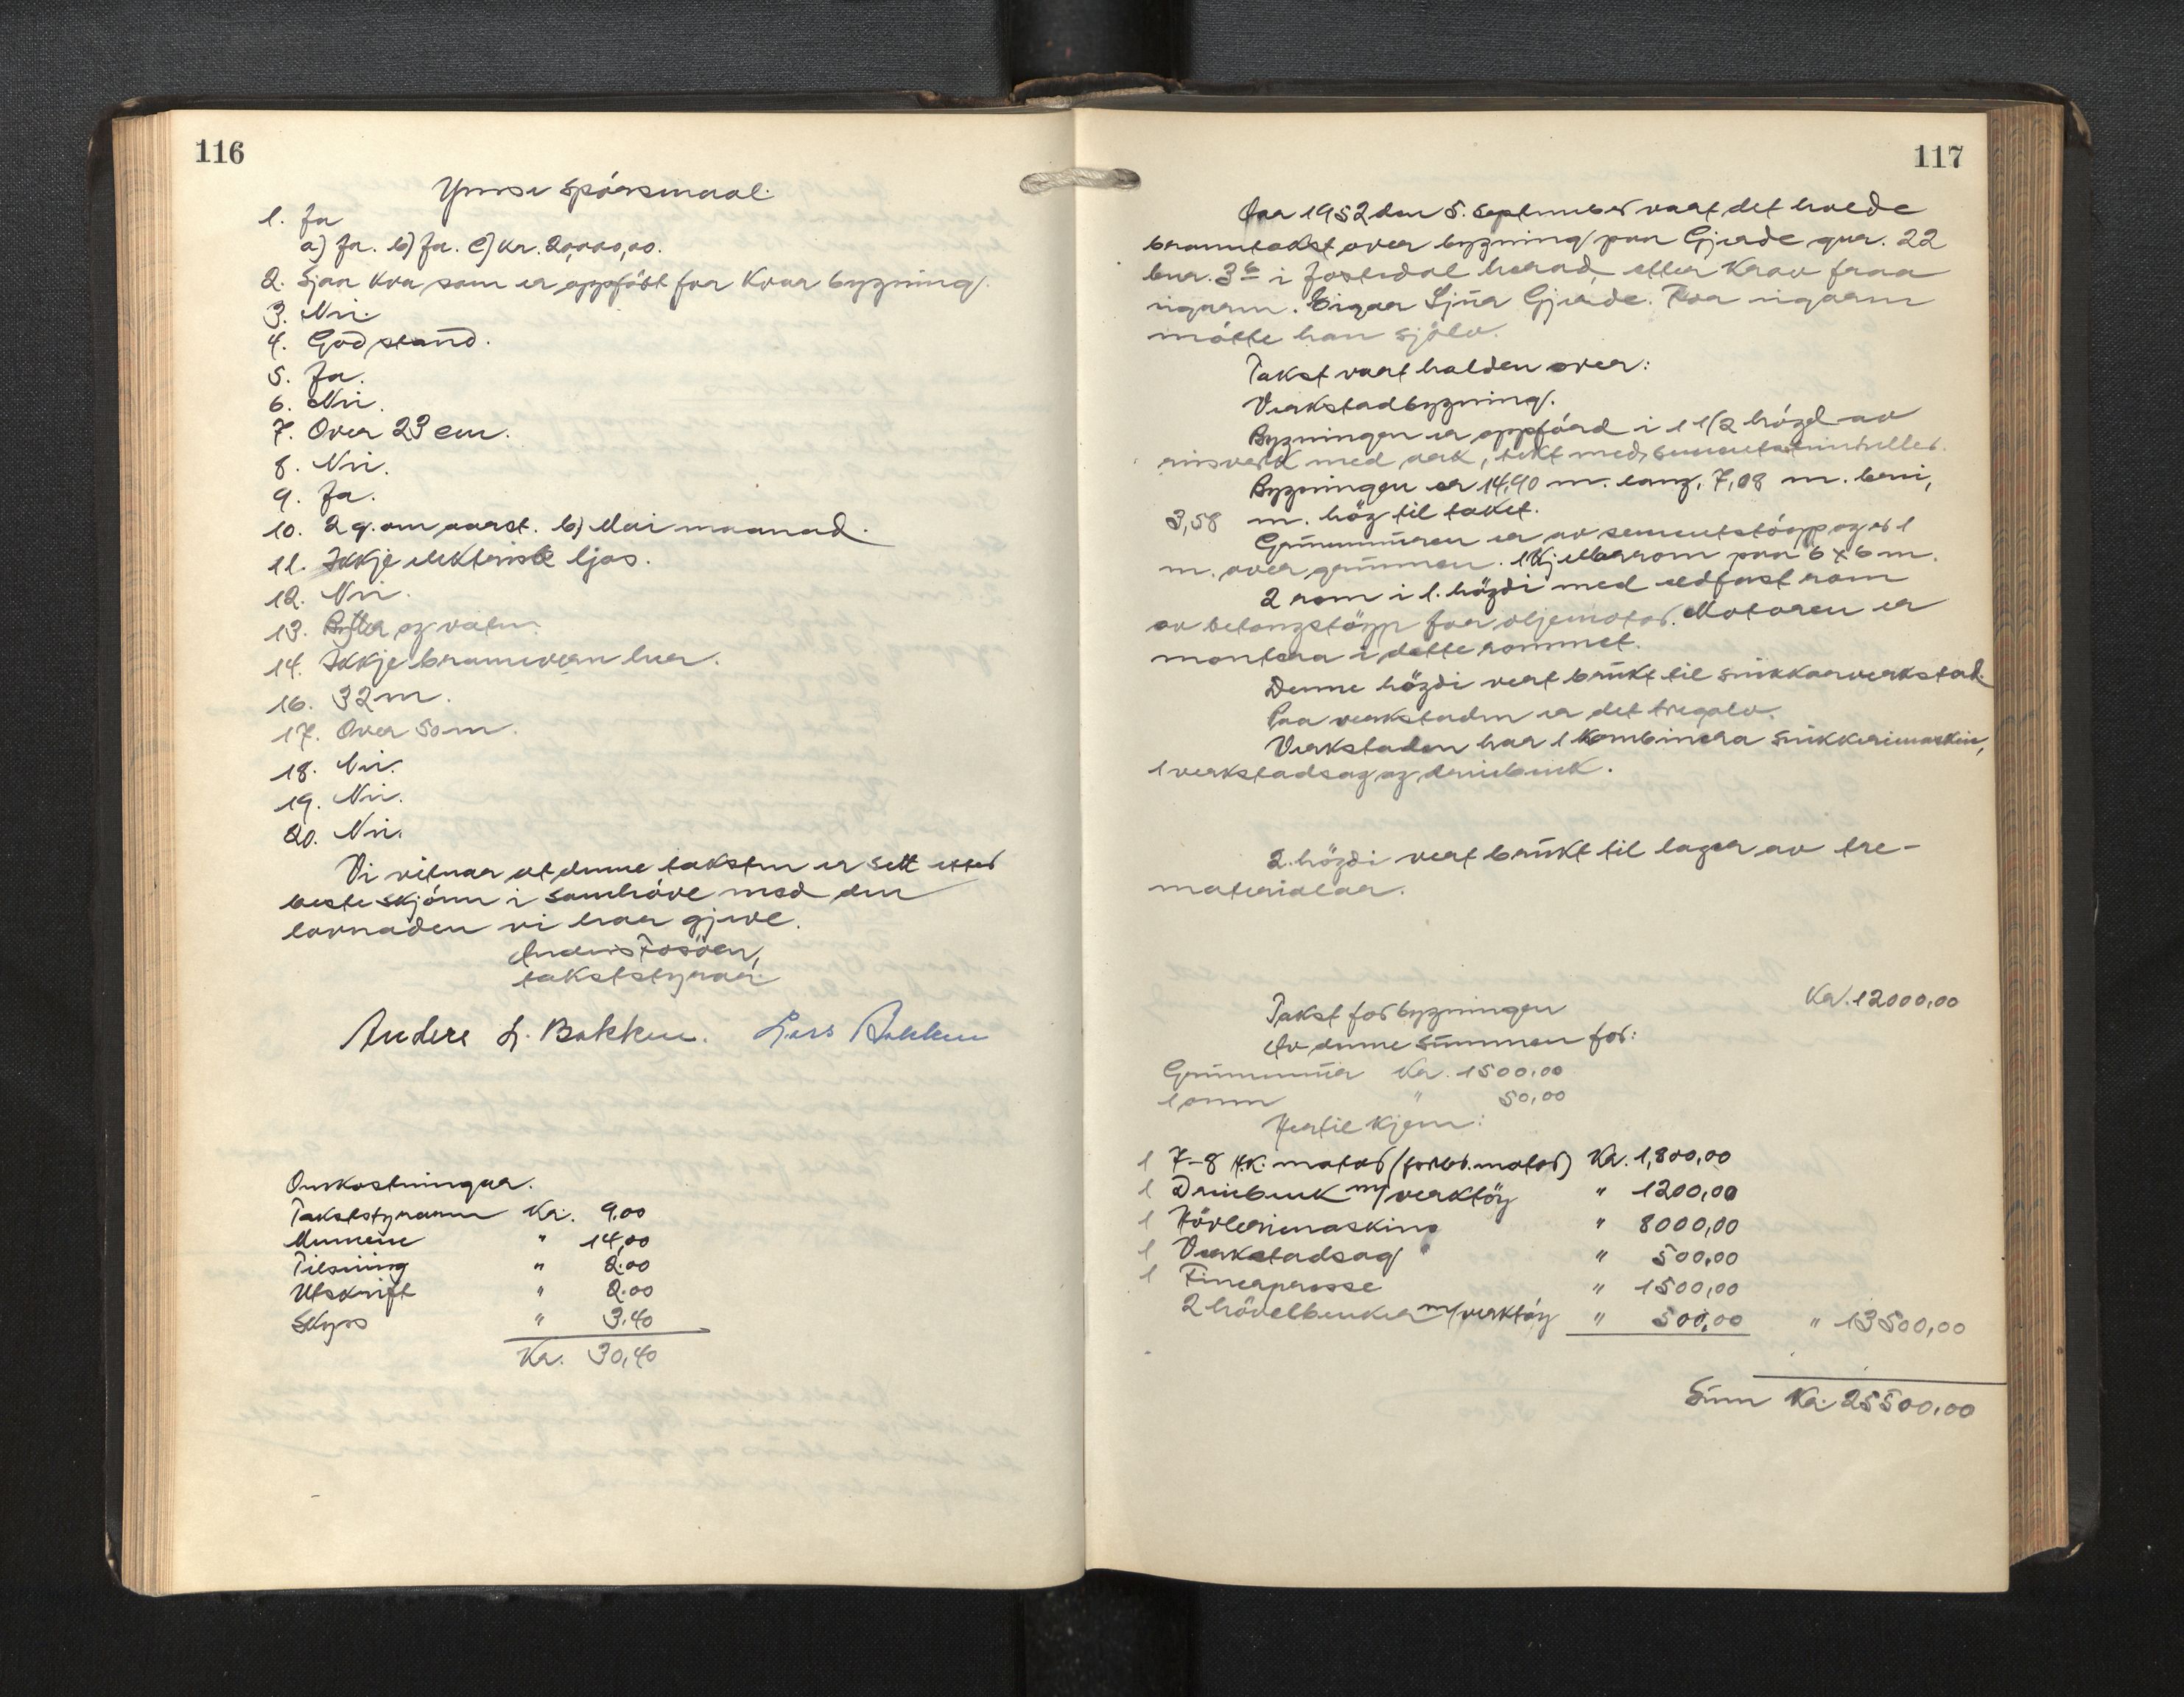 116
Ymse spörsmaal.
1. Ja
a) Ja. b) Ja. c) Kr. 20,000,00.
2. Sjaa kva som er oppfört for kvar bygning.
3. Nei.
4. God stand.
5. Ja.
6. Nei.
7. Over 23 cm.
8. Nei.
9. Ja.
10. 2 g. om aaret. b) Mai maanad.
11. Ikkje elektrisk ljos.
12. Nei.
13. Bytter og vatn.
14. Ikkje brannvern her.
16. 32 m.
17. Over 50 m.
18. Nei.
19. Nei.
20. Nei.
Vi vitnar at denne taksten er sett etter
beste skjönn i samhöve med den
lovnaden vi har gjeve.
Anders Fosöen,
takststyrar.
Anders L. Bakken. Lars Bakken
Omkostningar.
Takststyraren Kr. 9,00
Mennene " 14,00
Tilsining " 2.00
Utskrift " 2.00
Skyss " 3.40
Kr. 30,40
117
Aar 1952 den 5. september vart det halde
branntakst over bygning paa Gjerde gnr. 22
bnr. 36 i Jostedal herad etter krav fraa
eigaren. Eigar Gjerde. For eigaren
mötte han sjölv.
Takst vart halden over:
Verkstadbygning.
Bygningen er oppförd i 1 1/2 högd av
reisverk med ark, tekt med sementsteinheller.
Bygningen er 14,90 m. lang, 7,08 m. brei,
3,58 m. hög til taket.
Grunnmuren er av sementstöypog er 1
m. over grunnen. 1 Kjellarrom paa 6 x 6 m.
2 rom i 1. högdi med eldfast rom
av betongstöyp for oljemotor. Motoren er
montera i dette rommet.
Denne högdi vert brukt til snikkarverkstad.
Paa verkstaden er det tregolv.
Verkstaden har 1 kombinera snikkerimaskin,
1 verkstadsag og dreiebenk.
2. högdi vert brukt til lager av tre-
materialar.
Takst for bygningen Kr. 12000,00
Av denne summen for:
Grunnmur Kr. 1500,00
1 omn " 50,00
Hertil kjem:
1 7-8 H.K. motor (forbr. motor) Kr. 1,800,00
1 Dreiebenk m/verktöy " 1200,00
1 Hövlerimaskin " 8000,00
1 Verkstadsag " " 500,00
1 Finerpresse " 1500,00
2 hövelbenker m/verktöy " 500,00 " 13500,00
Sum Kr. 25500,00